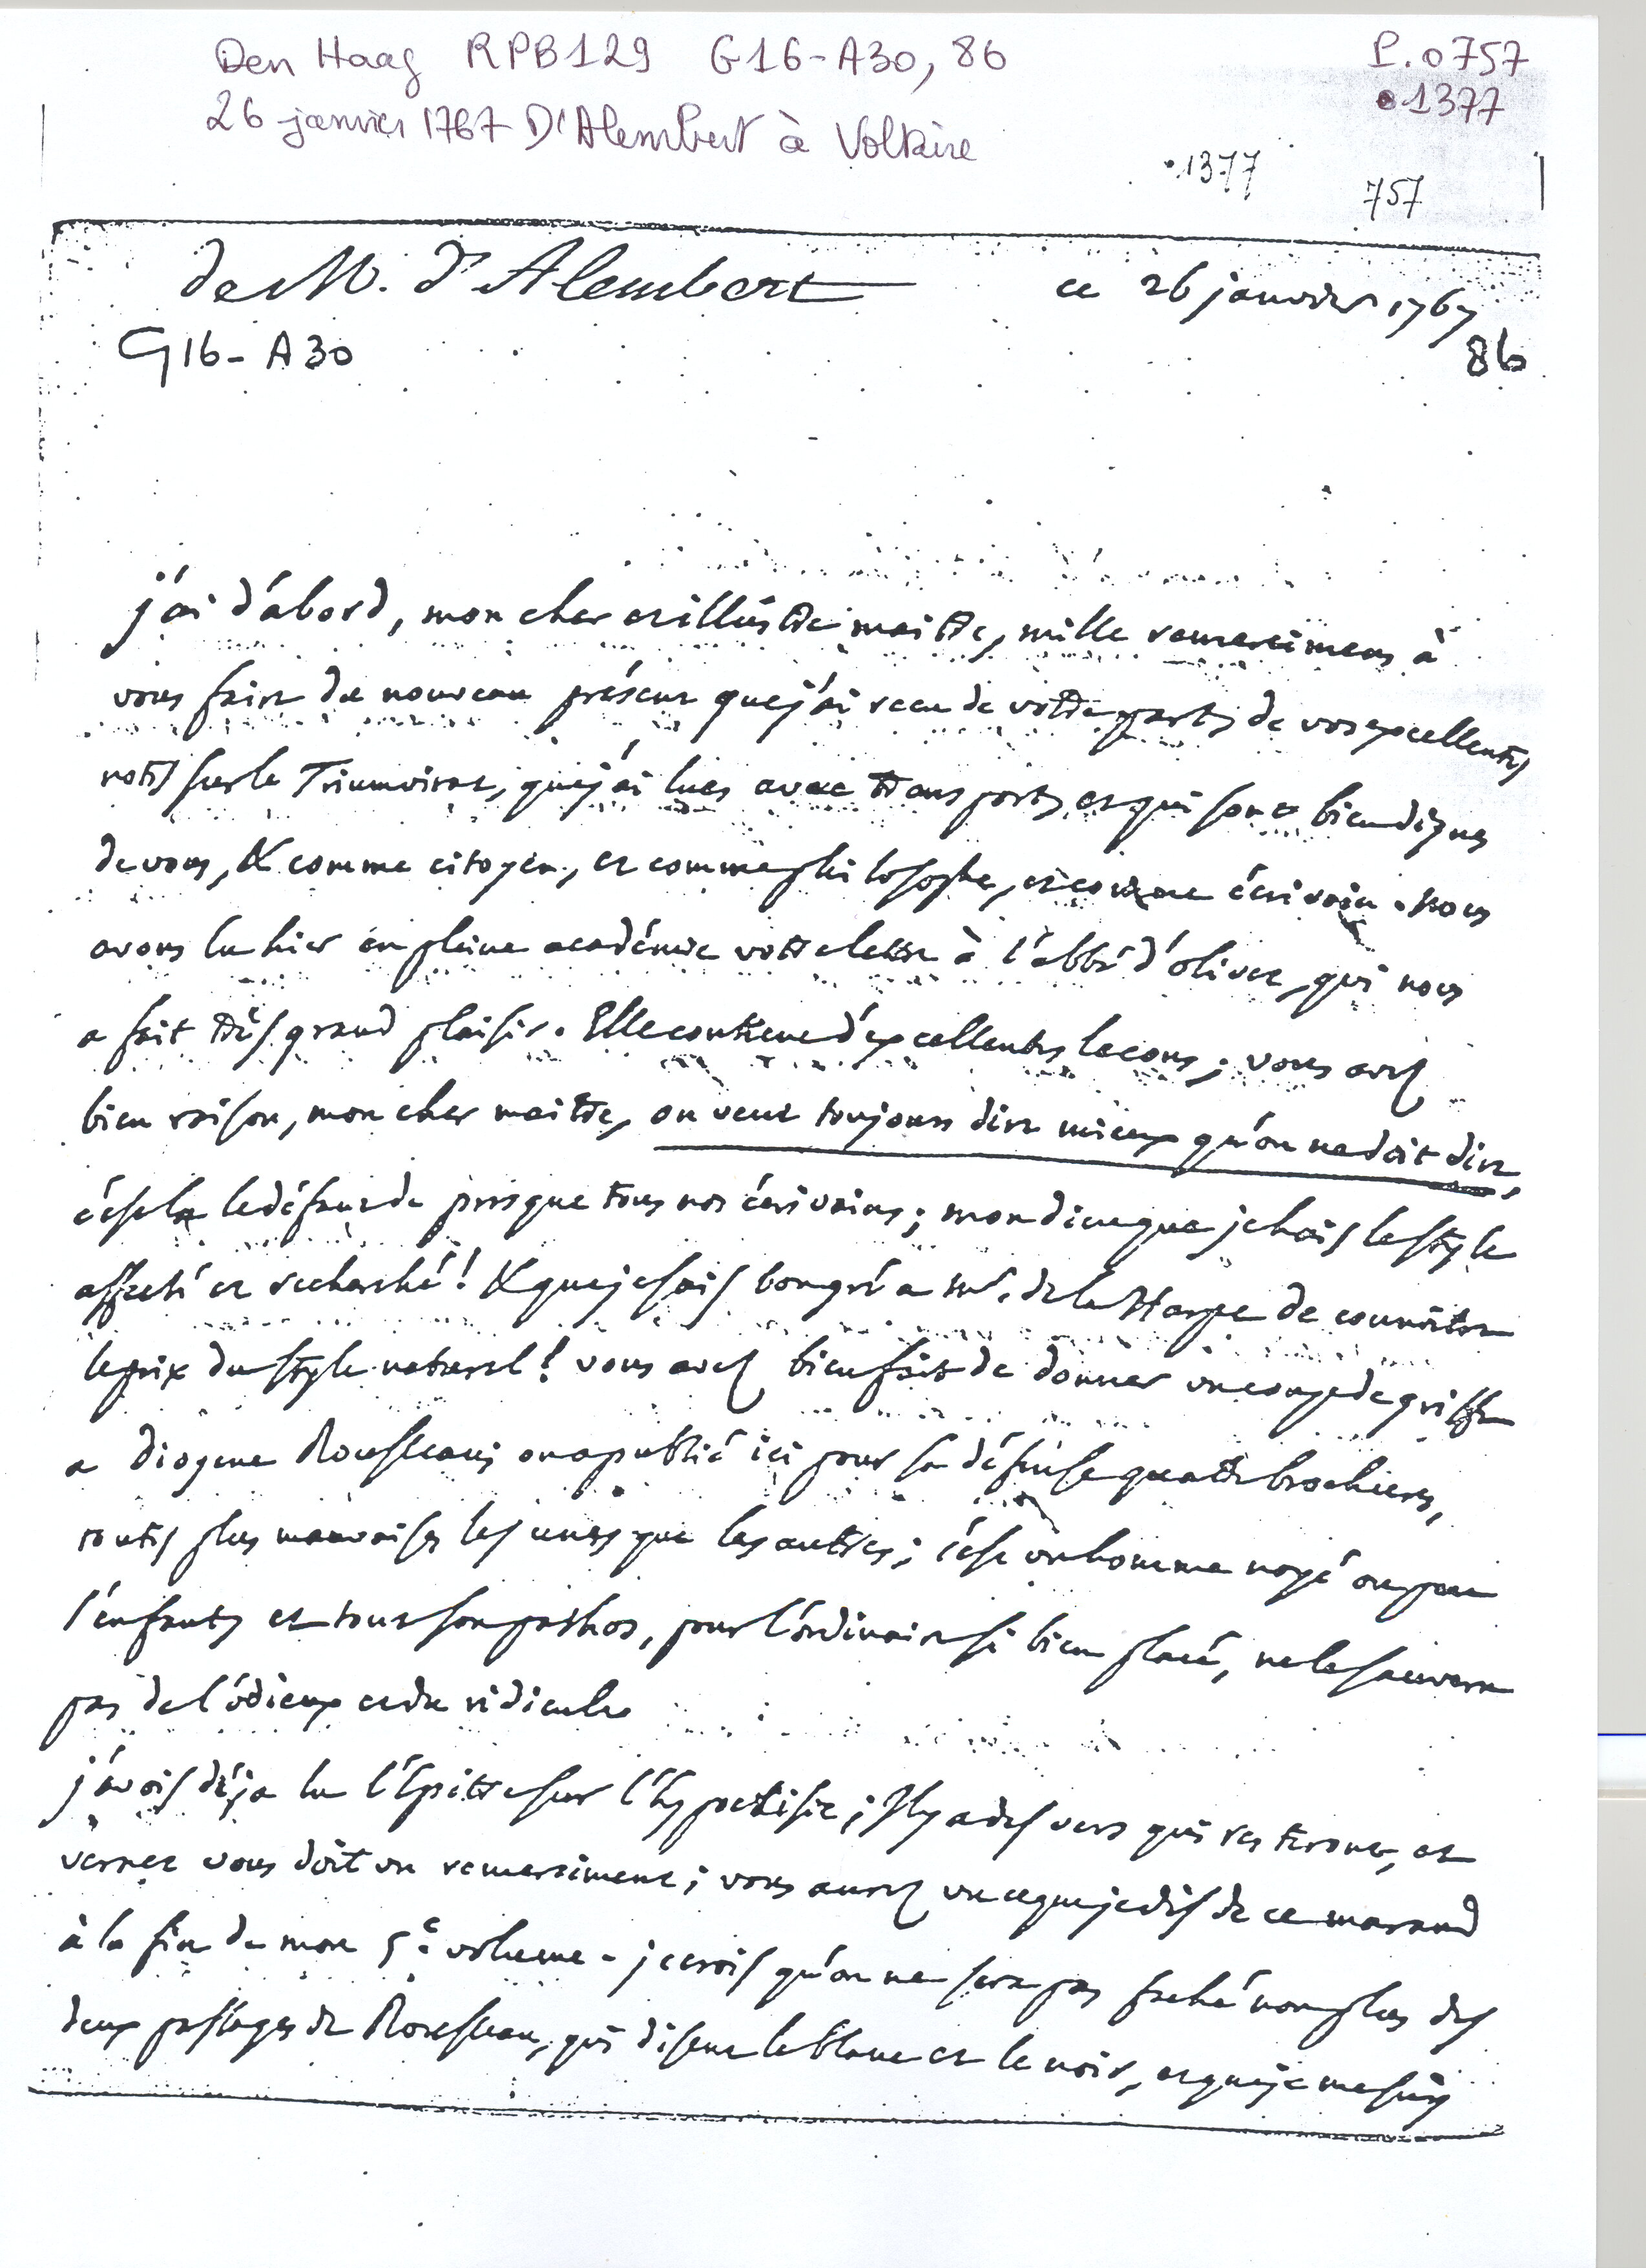 Den Haag RPB129 G16-A30, 86
P.0757
26 janvier 1767 D'Alembert à Voltaire
1377
1377
757
de M. d'Alembert
ce 26 janvier 1767
G16-A30
86
j'ai d'abord, mon cher et illustre maitre, mille remercimens à
vous faire du nouveau présent que j'ai recu de votre part, de vos excellentes
notes sur le Triumvirat, que j'ai lues avec transport, et qui sont bien dignes
de vous, & comme citoyen, et comme philosophe, et comme écrivain. nous
avons lu hier en pleine académie votre lettre à l'abbé d'olivet, qui nous
a fait très grand plaisir. Elle contient d'excellentes lecons; vous avez
bien raison, mon cher maitre, on veut toujours dire mieux qu'on ne doit dire,
c'est la le défaut de presque tous nos écrivains; mon dieu que je hais le style
affecté et recherché! & que je sais bon gré a mr. de la Harpe de connoitre
le prix du style naturel! vous avez bien fait de donner un coup de griffe
a diogene Rousseau; on a publié ici pour sa défense quatre brochures,
toutes plus mauvaises les unes que les autres; c'est un homme noyé ou peu
s'en faut, et tout son pathos, pour l'ordinaire si bien placé, ne le sauvera
pas de l'odieux et du ridicule.
j'avois déja lu l'Epitre sur l'hypocrisie; Il y a des vers qui resteront, et
vernet vous doit un remerciment; vous aurez vu ce que je dis de ce maraud
à la fin de mon 5e. volume. je crois qu'on ne sera pas faché non plus des
deux passages de Rousseau, qui disent le blanc et le noir, et que je me suis